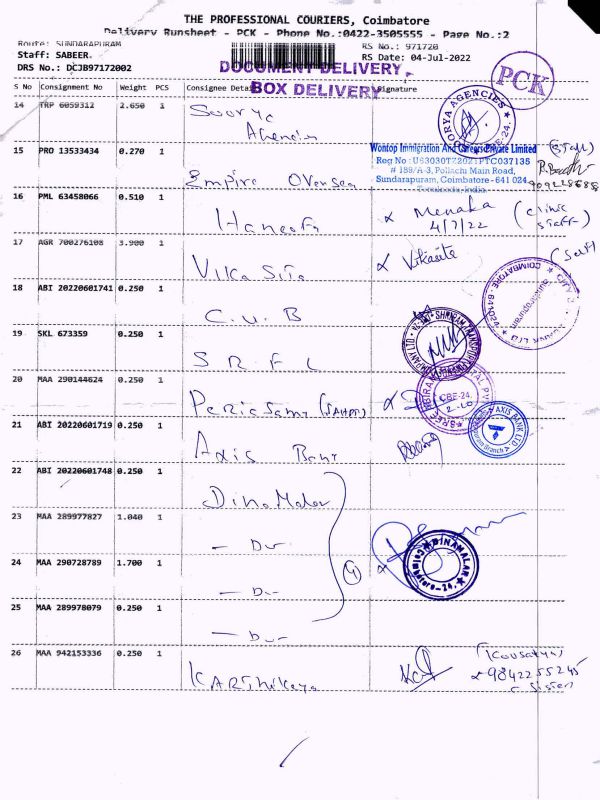 THE PROFESSIONAL COURIERS, Coimbatore
Delivery Runsheet - PCK - Phone No.:0422-3505555 - Page No.:2
Route: SUNDARAPURAM
RS No.: 971720
Staff: SABEER.
RS Date: 04-Jul-2022
DRS No.: DCJB97172002
DOCUMENT DELIVERY
BOX DELIVERY
PCK
S No Consignment No Weight PCS Consignee Detai Signature
14 TRP 6059312 2.650 1
Soorya
Agencies
15 PRO 13533434 0.270 1
Empire Oversea
Wontop Immigration And Careers Private Limited
Reg No : U63030TZ2021PTC037135
# 189/A-3, Pollachi Main Road,
Sundarapuram, Coimbatore - 641 024
Tamilnadu, India.
(Staff)
16 PML 63458066 0.510 1
Haneefa
Menaka
4/7/22
(clinic
staff)
17 AGR 700276108 3.900 1
Vikasita
(Staff)
18 ABI 20220601741 0.250 1
C.U.B
19 SKL 673359 0.250 1
S R F L
20 MAA 290144624 0.250 1
Periasamy
CBE-24.
21 ABI 20220601719 0.250 1
Axis Bank
AXIS BANK LTD
22 ABI 20220601748 0.250 1
Dinamalar
23 MAA 289977827 1.040 1
— Do —
24 MAA 290728789 1.700 1
— Do —
4
DINAMALAR
Coimbatore-24.
25 MAA 289978079 0.250 1
— Do —
26 MAA 942153336 0.250 1
Karthikeya
(Kousalya)
9842255245
Sister